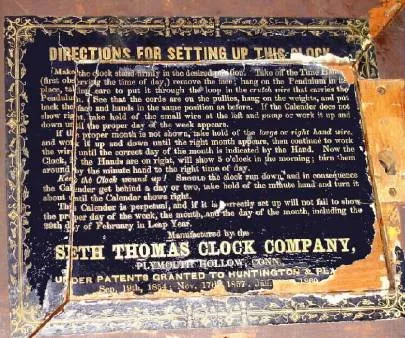 DIRECTIONS FOR SETTING UP THIS CLOCK
Make the clock stand firmly in the desired position. Take off the Time Hands
(first observing the time of day,) remove the face; hang on the Pendulum in its
place, taking care to put it through the loop in the crutch wire that carries the
Pendulum. (See that the cords are on the pullies, hang on the weights, and put
back the face and hands in the same position as before. If the Calender does not
show right, take hold of the small wire at the left and pump or work it up and
down until the proper day of the week appears.
If the proper month is not shown, take hold of the large or right hand wire,
and work it up and down until the right month appears, then continue to work
the wire until the correct day of the month is indicated by the Hand. Now the
Clock, if the Hands are on right, will show 5 o'clock in the morning; turn them
around by the minute hand to the right time of day.
Keep the Clock wound up. Should the clock run down, and in consequence
the Calender get behind a day or two, take hold of the minute hand and turn it
about until the Calender shows right.
This Calender is perpetual, and if it is correctly set up will not fail to show
the proper day of the week, the month, and the day of the month, including the
29th day of February in Leap Year.
Manufactured by the
SETH THOMAS CLOCK COMPANY,
PLYMOUTH HOLLOW, CONN.
UNDER PATENTS GRANTED TO HUNTINGTON &
Sep. 19th, 1854; Nov. 17th, 1857, Jan. 1860